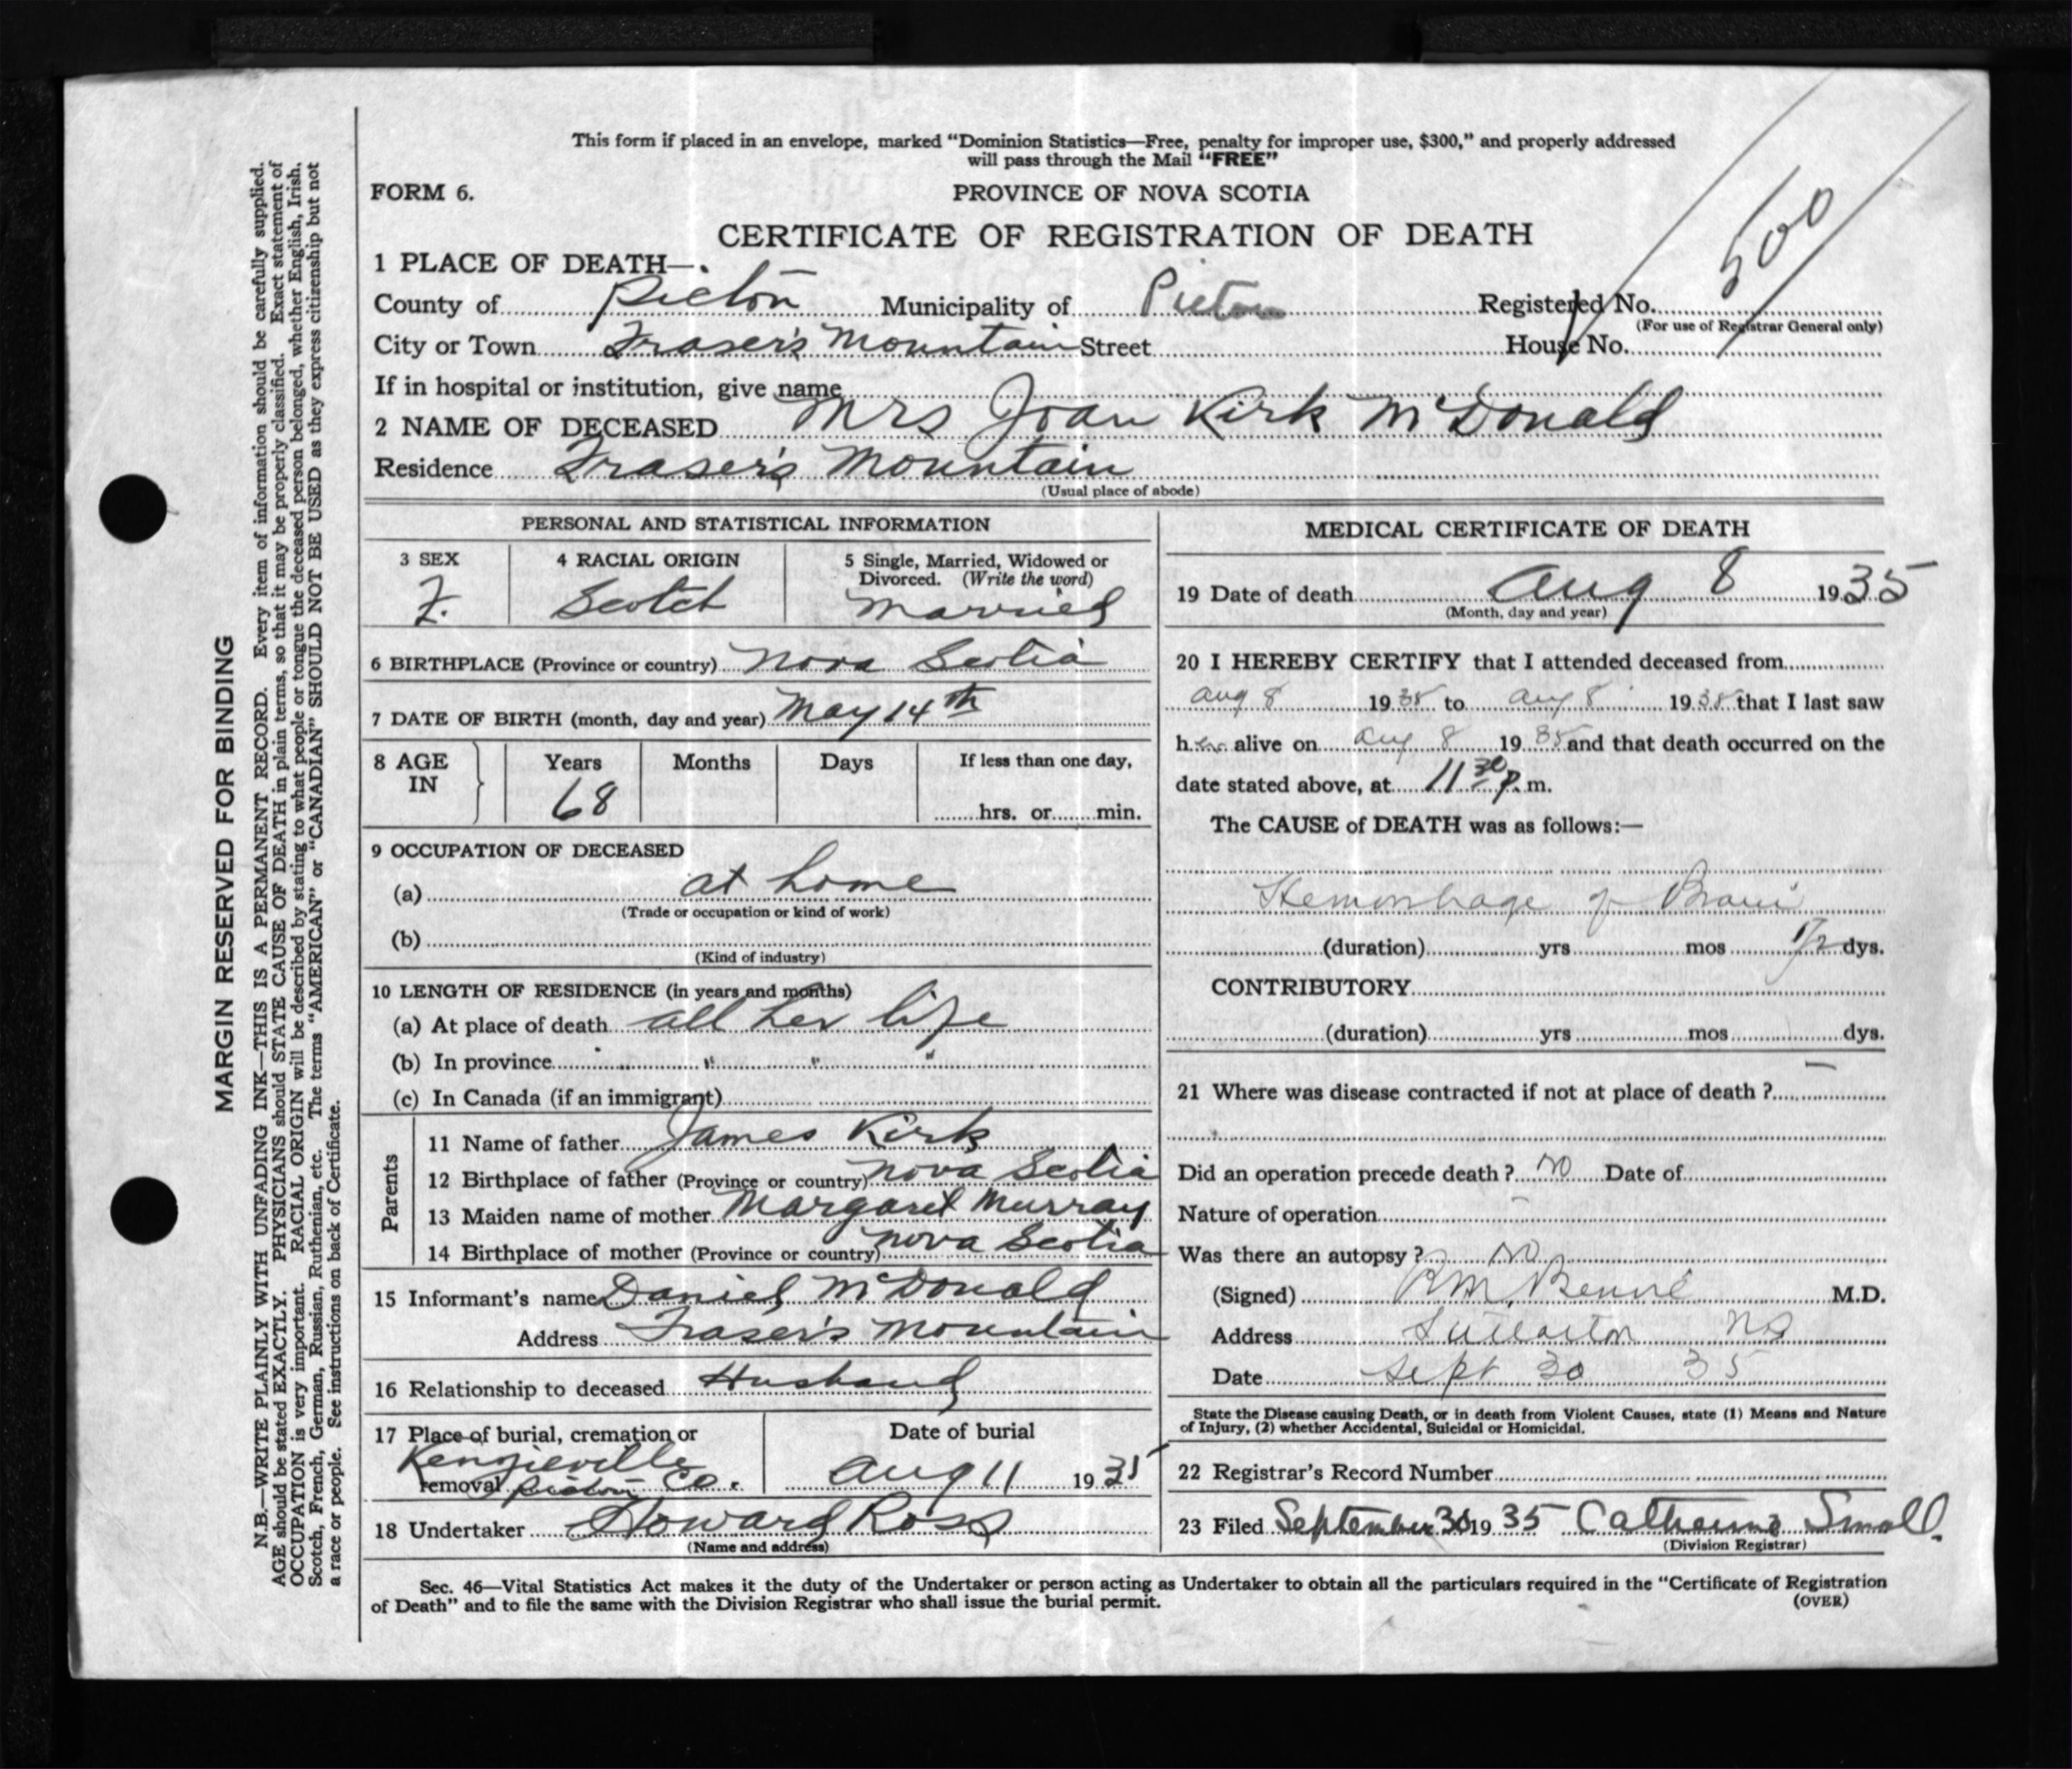 This form if placed in an envelope, marked "Dominion Statistics—Free, penalty for improper use, $300," and properly addressed
will pass through the Mail "FREE"
FORM 6.
PROVINCE OF NOVA SCOTIA
500
CERTIFICATE OF REGISTRATION OF DEATH
1 PLACE OF DEATH—
County of Pictou Municipality of Pictou Registered No.
(For use of Registrar General only)
City or Town Fraser's Mountain Street House No.
If in hospital or institution, give name
2 NAME OF DECEASED Mrs Joan Kirk McDonald
Residence Fraser's Mountain
(Usual place of abode)
PERSONAL AND STATISTICAL INFORMATION
3 SEX
F.
4 RACIAL ORIGIN
Scotch
5 Single, Married, Widowed or
Divorced. (Write the word)
Married
6 BIRTHPLACE (Province or country) Nova Scotia
7 DATE OF BIRTH (month, day and year) May 14th
8 AGE
IN
Years
68
Months
Days
If less than one day,
hrs. or min.
9 OCCUPATION OF DECEASED
(a) at home
(Trade or occupation or kind of work)
(b)
(Kind of industry)
10 LENGTH OF RESIDENCE (in years and months)
(a) At place of death all her life
(b) In province " " "
(c) In Canada (if an immigrant)
Parents
11 Name of father James Kirk
12 Birthplace of father (Province or country) Nova Scotia
13 Maiden name of mother Margaret Murray
14 Birthplace of mother (Province or country) Nova Scotia
15 Informant's name Daniel McDonald
Address Fraser's Mountain
16 Relationship to deceased Husband
17 Place of burial, cremation or
removal Kenzieville
Pictou Co.
Date of burial
Aug 11 1935
18 Undertaker Howard Ross
(Name and address)
MEDICAL CERTIFICATE OF DEATH
19 Date of death Aug 8 1935
(Month, day and year)
20 I HEREBY CERTIFY that I attended deceased from
Aug 8 1935 to Aug 8 1935 that I last saw
her alive on Aug 8 1935 and that death occurred on the
date stated above, at 11 30 p.m.
The CAUSE of DEATH was as follows:—
Hemorrhage of Brain
(duration) yrs mos 1/2 dys.
CONTRIBUTORY
(duration) yrs mos dys.
21 Where was disease contracted if not at place of death ? —
Did an operation precede death ? no Date of
Nature of operation
Was there an autopsy ? no
(Signed) M.D.
Address NS
Date Sept 30 35
State the Disease causing Death, or in death from Violent Causes, state (1) Means and Nature
of Injury, (2) whether Accidental, Suicidal or Homicidal.
22 Registrar's Record Number
23 Filed September 30 1935 Catherine Small.
(Division Registrar)
Sec. 46—Vital Statistics Act makes it the duty of the Undertaker or person acting as Undertaker to obtain all the particulars required in the "Certificate of Registration
of Death" and to file the same with the Division Registrar who shall issue the burial permit.
(OVER)
MARGIN RESERVED FOR BINDING
N.B.—WRITE PLAINLY WITH UNFADING INK—THIS IS A PERMANENT RECORD. Every item of information should be carefully supplied.
AGE should be stated EXACTLY. PHYSICIANS should STATE CAUSE OF DEATH in plain terms, so that it may be properly classified. Exact statement of
OCCUPATION is very important. RACIAL ORIGIN will be described by stating to what people or tongue the deceased person belonged, whether English, Irish,
Scotch, French, German, Russian, Ruthenian, etc. The terms "AMERICAN" or "CANADIAN" SHOULD NOT BE USED as they express citizenship but not
a race or people. See instructions on back of Certificate.